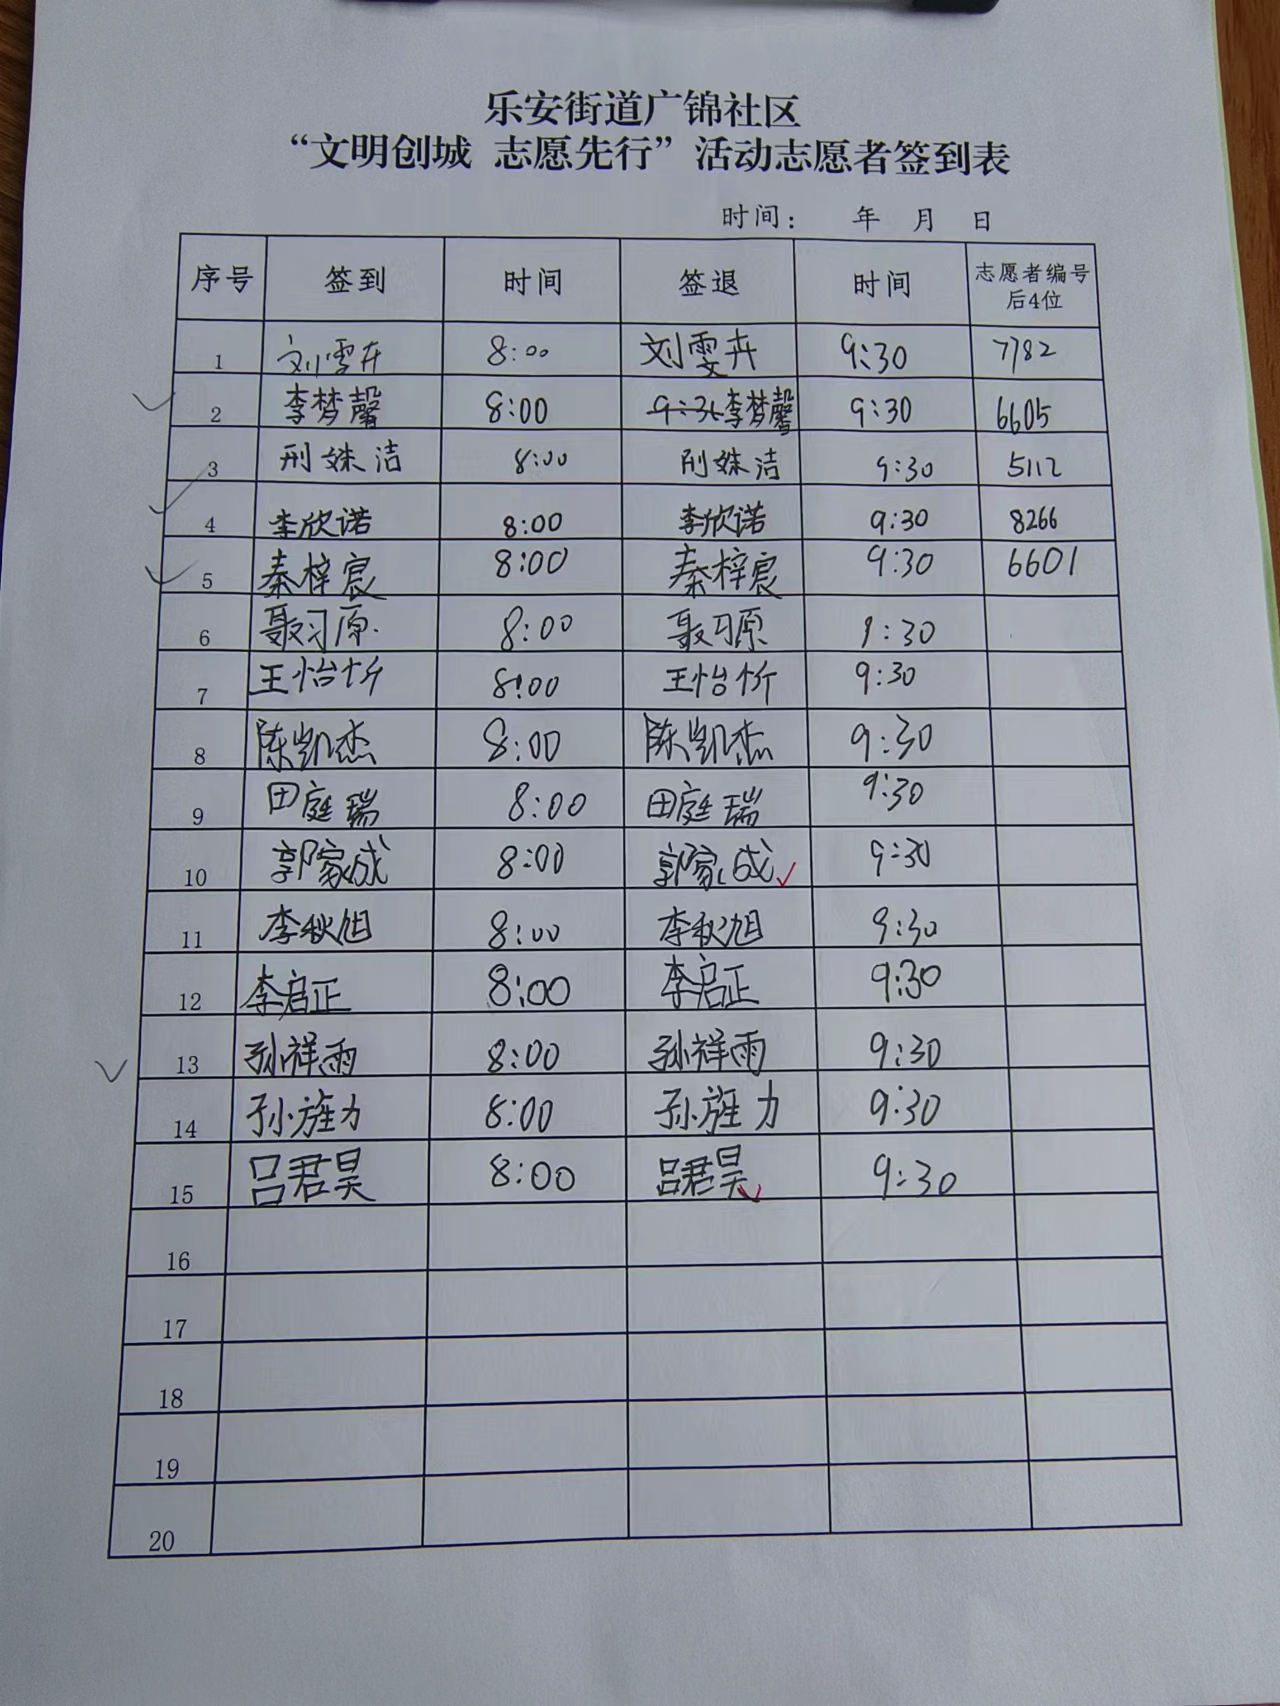 乐安街道广锦社区
“文明创城 志愿先行”活动志愿者签到表
时间： 年 月 日
序号 签到 时间 签退 时间 志愿者编号后4位
1 刘雯卉 8:00 刘雯卉 9:30 7782
2 李梦馨 8:00 李梦馨 9:30 6605
3 刑姝洁 8:00 刑姝洁 9:30 5112
4 李欣诺 8:00 李欣诺 9:30 8266
5 秦梓宸 8:00 秦梓宸 9:30 6601
6 聂习原 8:00 聂习原 9:30
7 王怡忻 8:00 王怡忻 9:30
8 陈凯杰 8:00 陈凯杰 9:30
9 田庭瑞 8:00 田庭瑞 9:30
10 郭家成 8:00 郭家成 9:30
11 李秋旭 8:00 李秋旭 9:30
12 李启正 8:00 李启正 9:30
13 孙祥雨 8:00 孙祥雨 9:30
14 孙旌力 8:00 孙旌力 9:30
15 吕君昊 8:00 吕君昊 9:30
16
17
18
19
20